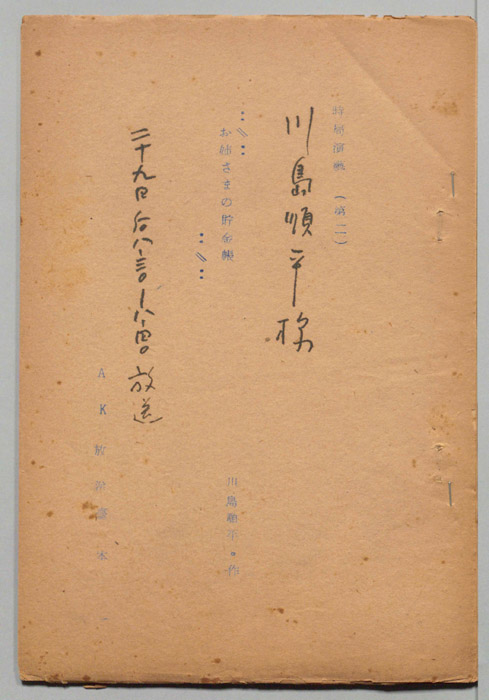 時局演芸 (第二)
川島順平様
お姉さまの貯金帳
川島順平・作
二十九日 后八・三〇―八・四〇 放送
AK放送台本